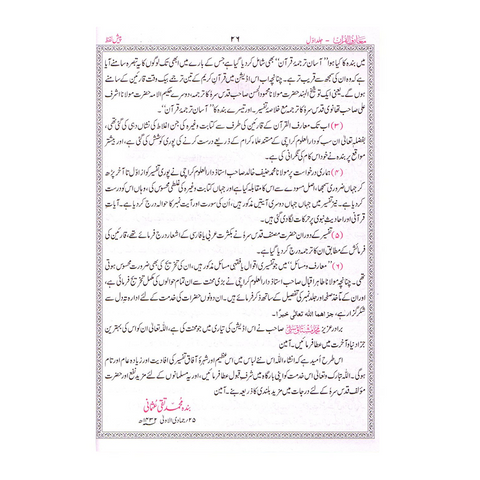 معارف القرآن - جلد اول ۲۶ پیش لفظ
میں بندہ کا کیا ہوا "آسان ترجمۂ قرآن" بھی شامل کر دیا گیا ہے جس کے بارے میں ابھی تک لوگوں کا یہ تبصرہ سامنے آیا
ہے کہ وہ ان کی سمجھ سے قریب تر ہے۔ چنانچہ اب اس ایڈیشن میں قرآن کریم کے تین ترجمے بیک وقت قارئین کے سامنے
ہوں گے۔ یعنی ایک تو شیخ الہند حضرت مولانا محمود الحسن صاحب قدس سرہٗ کا ترجمہ، دوسرے حکیم الامۃ حضرت مولانا اشرف
علی صاحب تھانوی قدس سرہٗ کا ترجمہ مع خلاصۂ تفسیر، اور تیسرے بندہ کا "آسان ترجمۂ قرآن"۔
(۳) اب تک معارف القرآن کے قارئین کی طرف سے کتابت وغیرہ کی جن اغلاط کی نشان دہی کی گئی تھی،
بفضلہ تعالیٰ ان سب کو دارالعلوم کراچی کے مستند علماء کرام کے ذریعے درست کرنے کی پوری کوشش کی گئی ہے، اور بیشتر
مواقع پر بندہ نے خود اس کام کی نگرانی کی ہے۔
(۴) ہماری درخواست پر مولانا محمد حنیف خالد صاحب استاذ دارالعلوم کراچی نے پوری تفسیر کو از اوّل تا آخر پڑھ
کر جہاں ضروری سمجھا، اصل مسودے سے اس کا مقابلہ کیا ہے اور جہاں کتابت وغیرہ کی غلطی محسوس کی، وہاں اس کو درست
کر دیا ہے۔ نیز تفسیر میں جہاں جہاں دوسری آیتیں مذکور ہیں، اُن کی سورت اور آیت نمبر کا حوالہ درج کر دیا ہے۔ آیات
قرآنی اور احادیثِ نبوی پر حرکات لگا دی گئی ہیں۔
(۵) تفسیر کے دوران حضرت مصنف قدس سرہٗ نے بکثرت عربی یا فارسی کے اشعار درج فرمائے تھے، قارئین کی
فرمائش کے مطابق ان کا ترجمہ درج کر دیا گیا ہے۔
(۶) "معارف و مسائل" میں جو تفسیری اقوال یا فقہی مسائل مذکور ہیں، ان کی تخریج کی بھی ضرورت محسوس ہوتی
تھی۔ چنانچہ مولانا طاہر اقبال صاحب استاذ دارالعلوم کراچی نے بڑی محنت سے ان تمام حوالوں کی مکمل تخریج فرمائی ہے،
اور ان کے مآخذ صفحہ اور جلد نمبر کی تفصیل کے ساتھ ذکر فرمائے ہیں۔ ان دونوں حضرات کی خدمت کے لئے ادارہ تہِ دل سے
شکرگزار ہے، جزاھما اللہ تعالیٰ خیرًا۔
برادرِ عزیز صاحب نے اس ایڈیشن کی تیاری میں جو محنت کی ہے، اللہ تعالیٰ ان کو اس کی بہترین
جزا دنیا و آخرت میں عطا فرمائیں۔ آمین
اس طرح اُمید ہے کہ انشاء اللہ اس نئے لباس میں اس عظیم اور شہرۂ آفاق تفسیر کی افادیت اور زیادہ عام اور تام
ہوگی۔ اللہ تبارک و تعالیٰ اس خدمت کو اپنی بارگاہ میں شرفِ قبول عطا فرمائیں، اور یہ مسلمانوں کے لئے مزید نفع اور حضرت
مؤلف قدس سرہٗ کے لئے درجات میں مزید بلندی کا ذریعہ بنے۔ آمین
بندہ محمد تقی عثمانی
۲۵؍ جمادی الاولیٰ ۱۴۳۲ھ